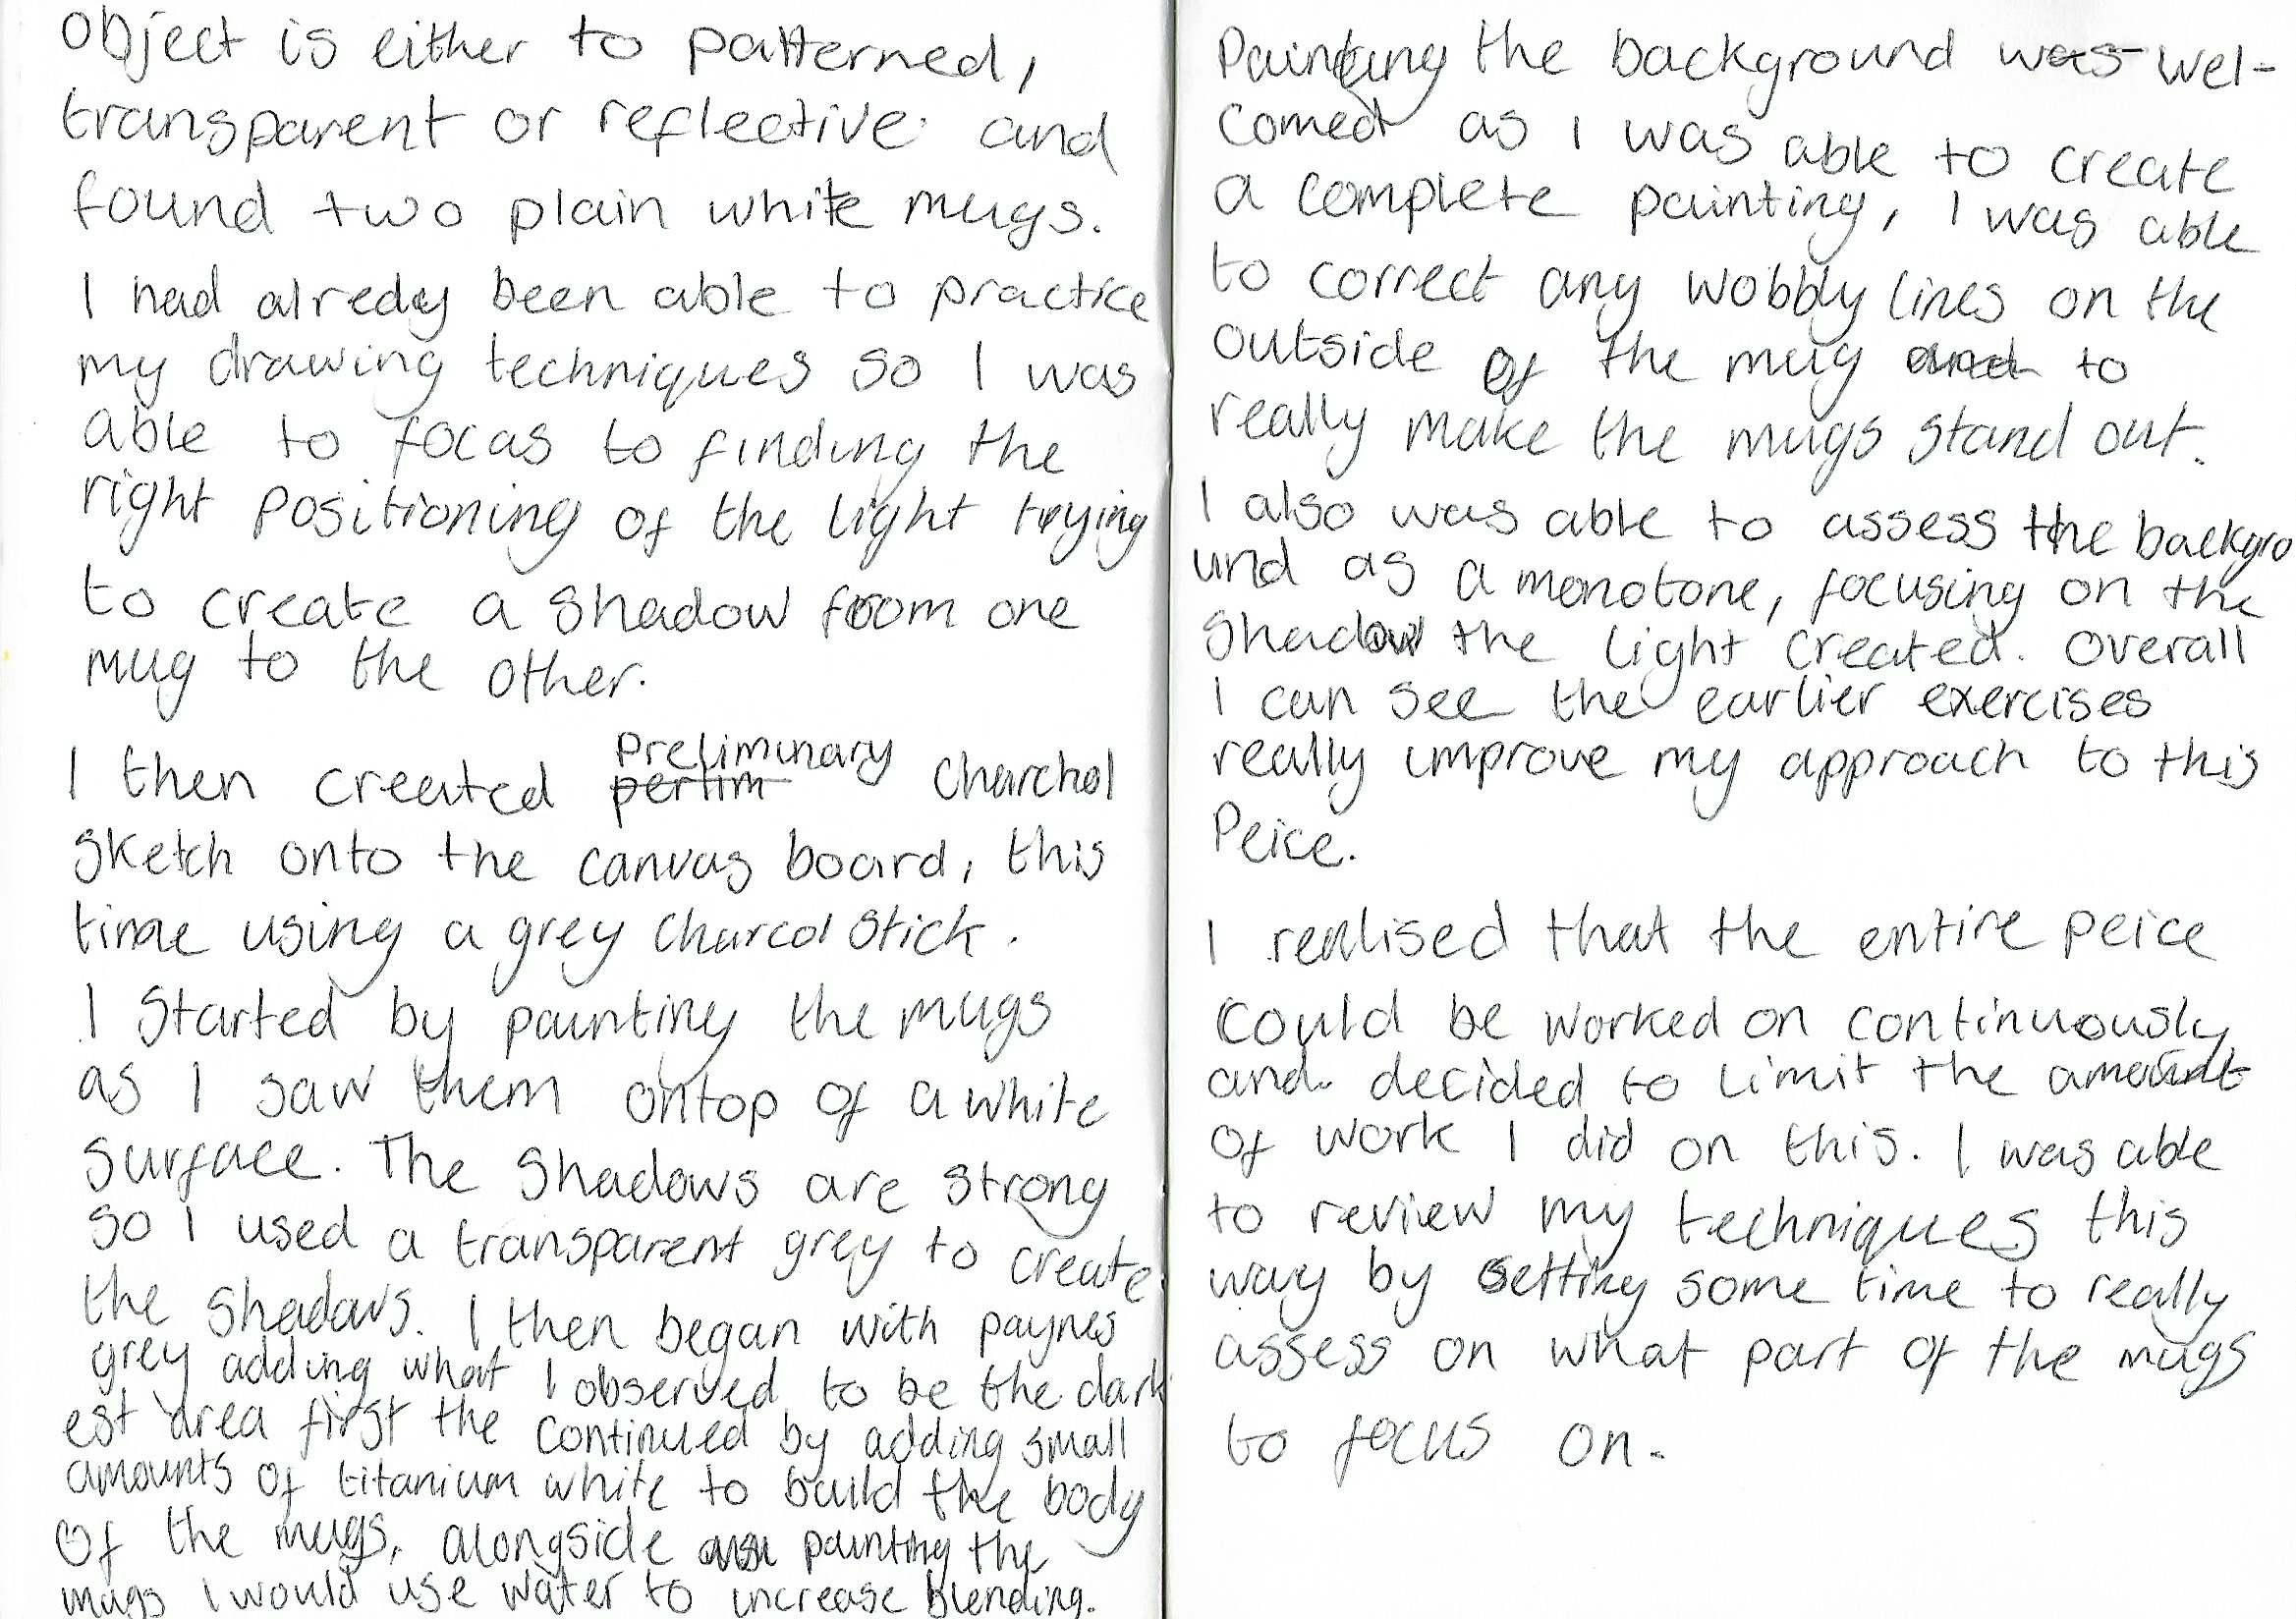 object is either to patterned,
transparent or reflective and
found two plain white mugs.
I had alredey been able to practice
my drawing techniques so I was
able to focas to finding the
right positioning of the light trying
to create a shadow from one
mug to the other.
preliminary
I then created perlim charchol
sketch onto the canvas board, this
time using a grey charcol stick.
I started by painting the mugs
as I saw them ontop of a white
surface. The shadows are strong
so I used a transparent grey to create
the shadows. I then began with paynes
grey adding what I observed to be the dark
est area first the continued by adding small
amounts of titanium white to build the body
of the mugs, alongside painting the
mugs I would use water to increase blending.
Painting the background was wel-
comed as I was able to create
a complete painting, I was able
to correct any wobbly lines on the
outside of the mug and to
really make the mugs stand out.
I also was able to assess the backgro
und as a monotone, focusing on the
shadow the light created. Overall
I can see the earlier exercises
really improve my approach to this
Peice.
I realised that the entire peice
could be worked on continuously
and decided to limit the amount
of work I did on this. I was able
to review my techniques this
way by setting some time to really
assess on what part of the mugs
to focus on.